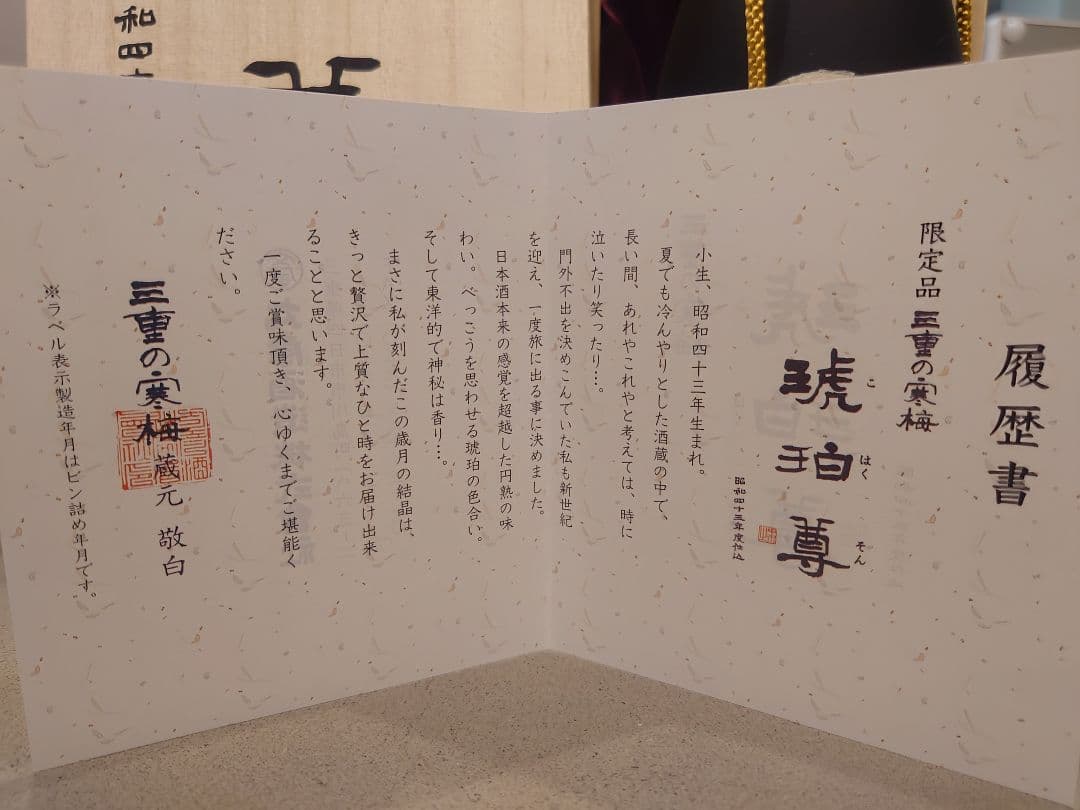 和四
履歴書
限定品 三重の寒梅
琥珀尊
こ はく そん
昭和四十三年度仕込
小生、昭和四十三年生まれ。
夏でも冷んやりとした酒蔵の中で、
長い間、あれやこれやと考えては、時に
泣いたり笑ったり…。
門外不出を決めこんでいた私も新世紀
を迎え、一度旅に出る事に決めました。
日本酒本来の感覚を超越した円熟の味
わい。べっこうを思わせる琥珀の色合い。
そして東洋的で神秘は香り…。
まさに私が刻んだこの歳月の結晶は、
きっと贅沢で上質なひと時をお届け出来
ることと思います。
一度ご賞味頂き、心ゆくまでご堪能く
ださい。
三重の寒梅 蔵元 敬白
※ラベル表示製造年月はビン詰め年月です。